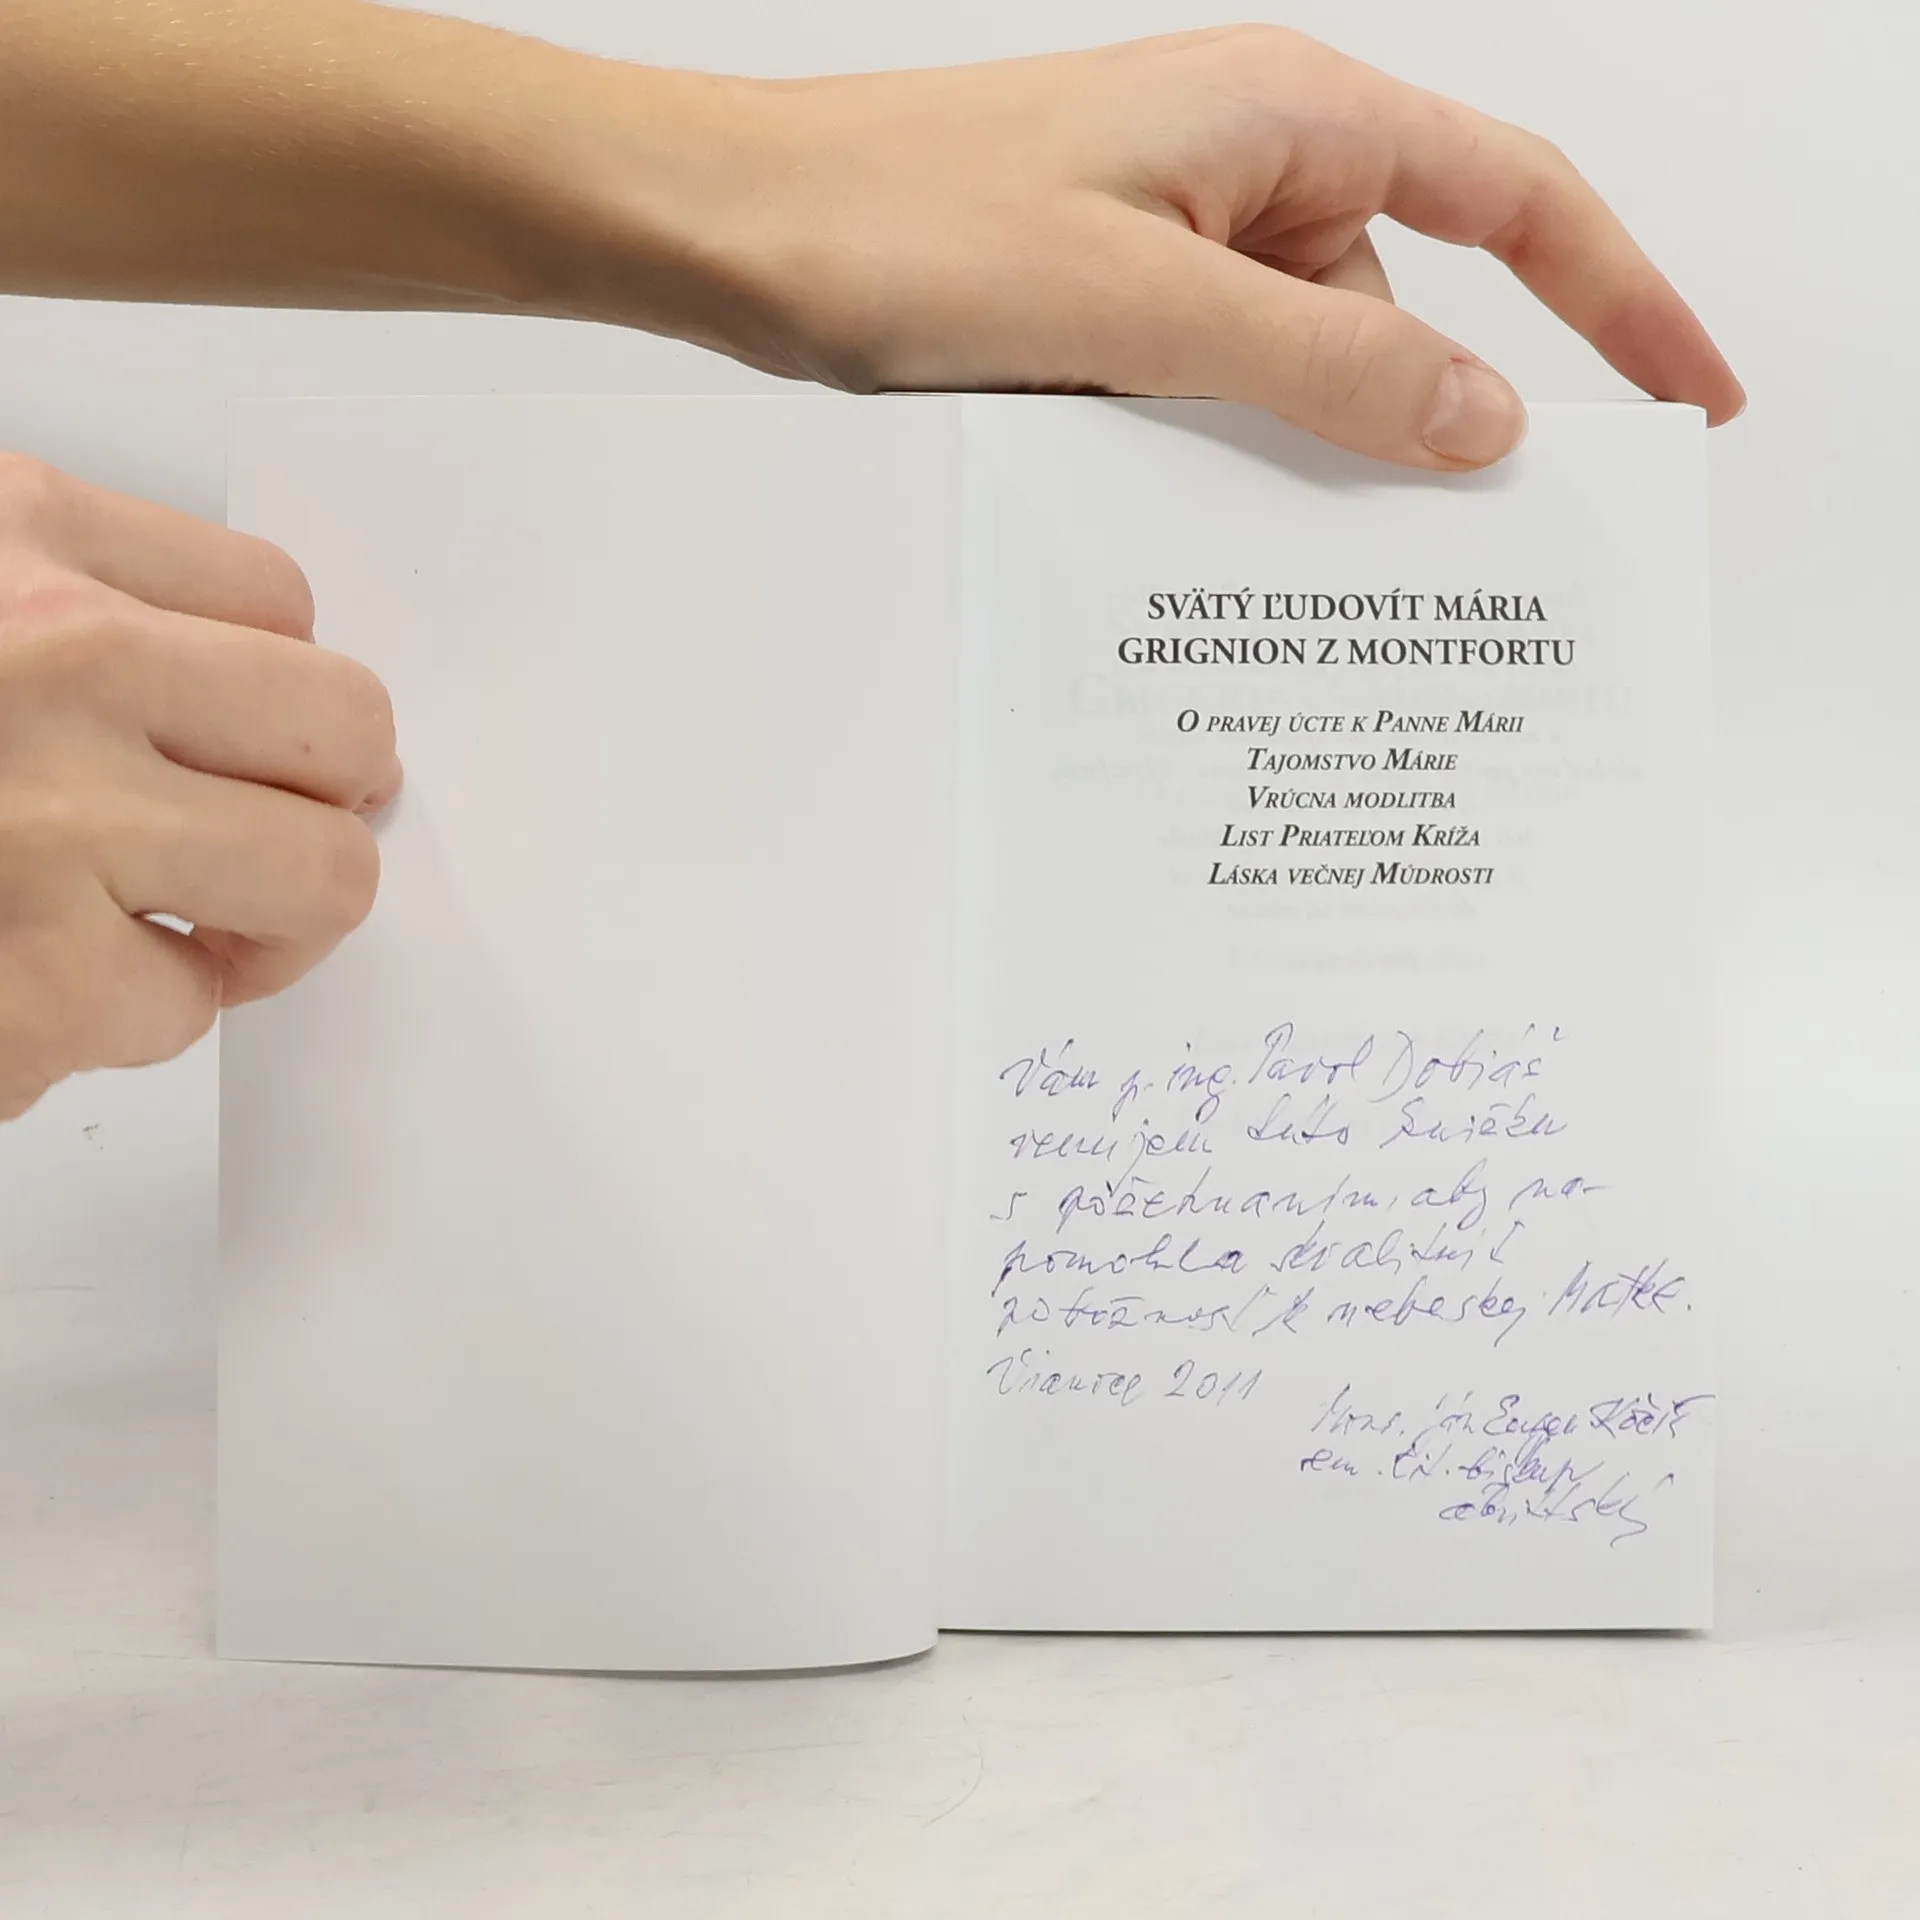 SVÄTÝ ĽUDOVÍT MÁRIA
GRIGNION Z MONTFORTU
O PRAVEJ ÚCTE K PANNE MÁRII
TAJOMSTVO MÁRIE
VRÚCNA MODLITBA
LIST PRIATEĽOM KRÍŽA
LÁSKA VEČNEJ MÚDROSTI
Vám p. ing. Pavol Dobiáš
venujem túto knižku
s požehnaním, aby na-
pomohla skvalitniť
pobožnosť k nebeskej Matke.
Vianoce 2011
Mons. Ján Eugen Kočiš
em. tit. biskup